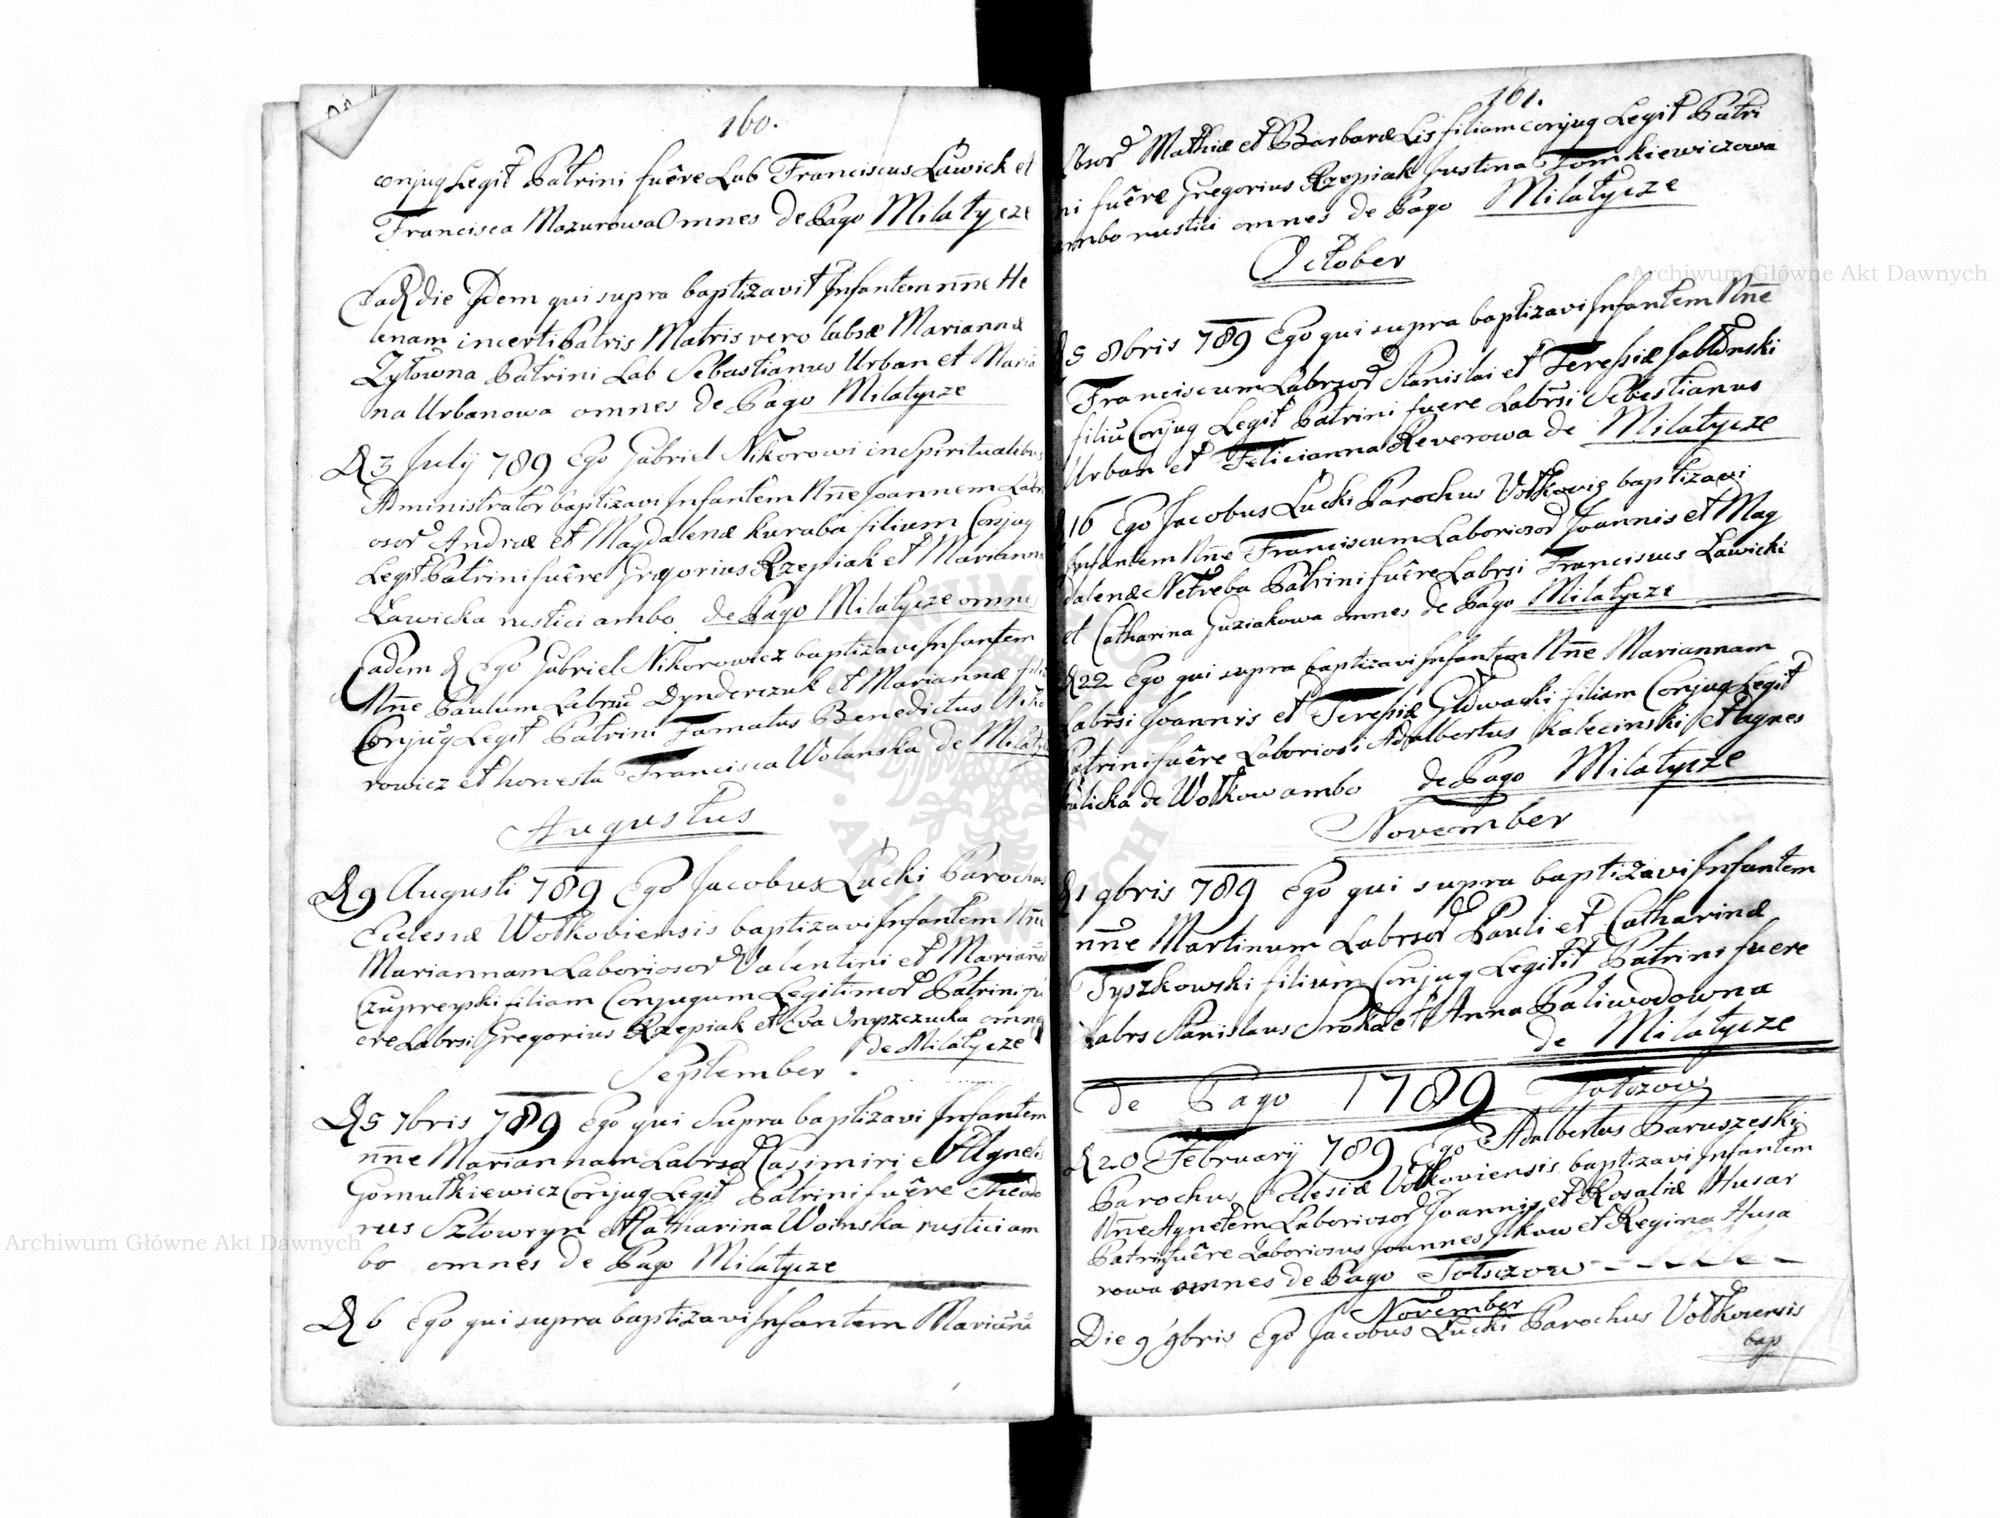 160.
conjug Legit Patrini fuêre Lab Franciscus Ławick et
Francisca Mazurowa Omnes de Pago Milatycze
Ead die Idem qui supra baptizavit Infantem nñe He
lenam incerti Patris Matris vero labsæ Mariannæ
Zytowna Patrini Lab Sebastianus Urban et Maria
na Urbanowa omnes de Pago Milatycze
D 3 July 789 Ego Gabriel Nikorowi in Spiritualibus
Administrator baptizavi Infantem Nñe Joannem Labr
osor Andræ et Magdalenæ Kuraba filium Conjug
Legit Patrini fuêre Gregorius Rzepiak et Marianna
Ławicka rustici ambo de Pago Milatycze omne
Eadem d Ego Gabriel Nikorowicz baptizavi Infantem
Nñe Paulum Labrsu Dynderczuk et Mariannæ fili
Conjug Legit Patrini Famatus Benedictus Niko
rowicz et honesta Francisca Wolanska de Milaty
Augustus
D 9 Augusti 789 Ego Jacobus Łucki Parochus
Eclesiæ Wołkoviensis baptizavi Infantem Nñe
Mariannam Laboriosor Valentini et Mariañæ
Czupreyski filiam Conjugum Legitimor Patrini fu
ere Labrsi Gregorius Rzepiak et Eva Onyszczucka omnes
de Milatycze
September
D 5 7bris 789 Ego qui Supra baptizavi Infantem
nñe Mariannam Labrsor Casimiri et Agneti
Gomułkiewicz Conjug Legit Patrini fuêre Theodo
rus Szłowryn et Catharina Woinska rustici am
bo omnes de Pago Milatycze
D 6 Ego qui supra baptizavi Infantem Mariañã
161.
Mathiæ et Barbaræ Lis filiam conjug Legit Patri
ni fuêre Gregorius Rzepiak Justina Tomkiewiczowa
ambo rustici omnes de Pago Milatycze
October
D 5 8bris 789 Ego qui supra baptizavi Infantem Nñe
Franciscum Labrsor Stanislai et Teresiæ Jabłonski
filiũ Conjug Legit Patrini fuere Labrsi Sebestianus
Urban et Felicianna Reverowa de Milatycze
D 16 Ego Jacobus Łucki Parochus Vołkovis baptizavi
Infantem Nñe Franciscum Laboriosor Joannis et Mag
dalenæ Netreba Patrini fuêre Labrsi Franciscus Ławicki
et Catharina Guziakowa omnes de Pago Milatycze
D 22 Ego qui supra baptizavi Infantem Nñe Mariannam
Labrsi Joannis et Teresiæ Głowacki filiam Conjug Legit
Patrini fuêre Laboriosi Adalbertus Kalecinski et Agnes
de Wołkow ambo de Pago Milatycze
November
D 1 9bris 789 Ego qui supra baptizavi Infantem
nñe Martinum Labrsor Pauli et Catharinæ
Tyszkowski filium Conjug Legitit Patrini fuere
Labrs Stanislaus Sroka et Anna Paliwodowna
de Milatycze
de Pago 1789 Tołszow
D 20 February 789 Ego Adalbertus Paruszeski
Parochus Eclesiæ Vołkoviensis baptizavi Infantem
Nñe Agnetem Laboriosor Joannis et Rosaliæ Husar
Patrini fuêre Laboriosus Joannes Ilkow et Regina Husa
rowa omnes de Pago Tołszow
November
Die 9 9bris Ego Jacobus Łucki Parochus Vołkovensis
bap
Archiwum Główne Akt Dawnych
Archiwum Główne Akt Dawnych